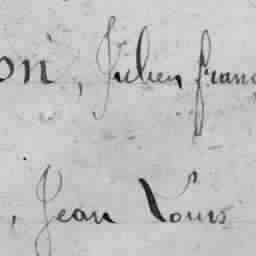 on, Julien franç
, Jean Louis